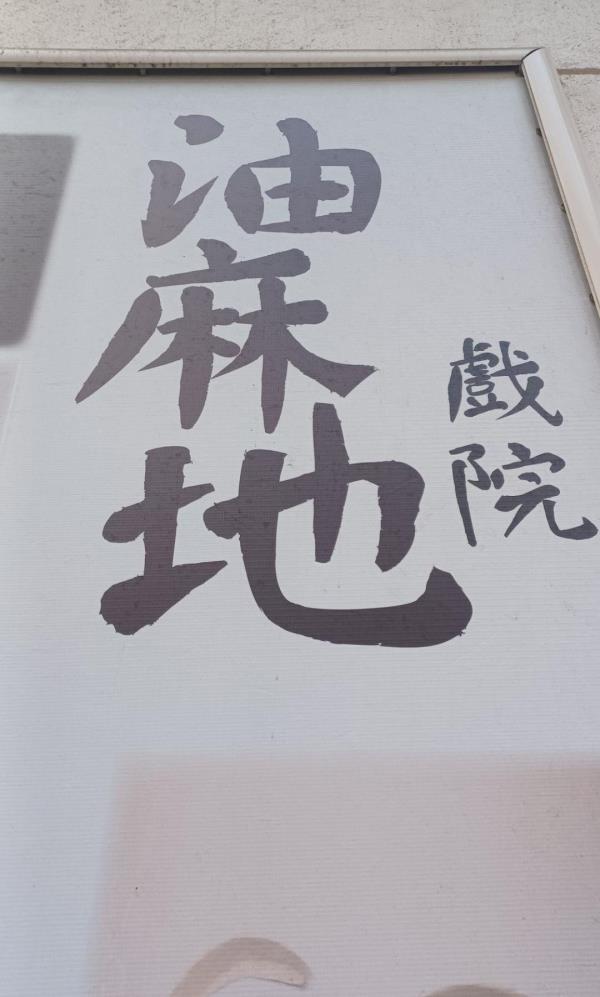 油麻地
戲院